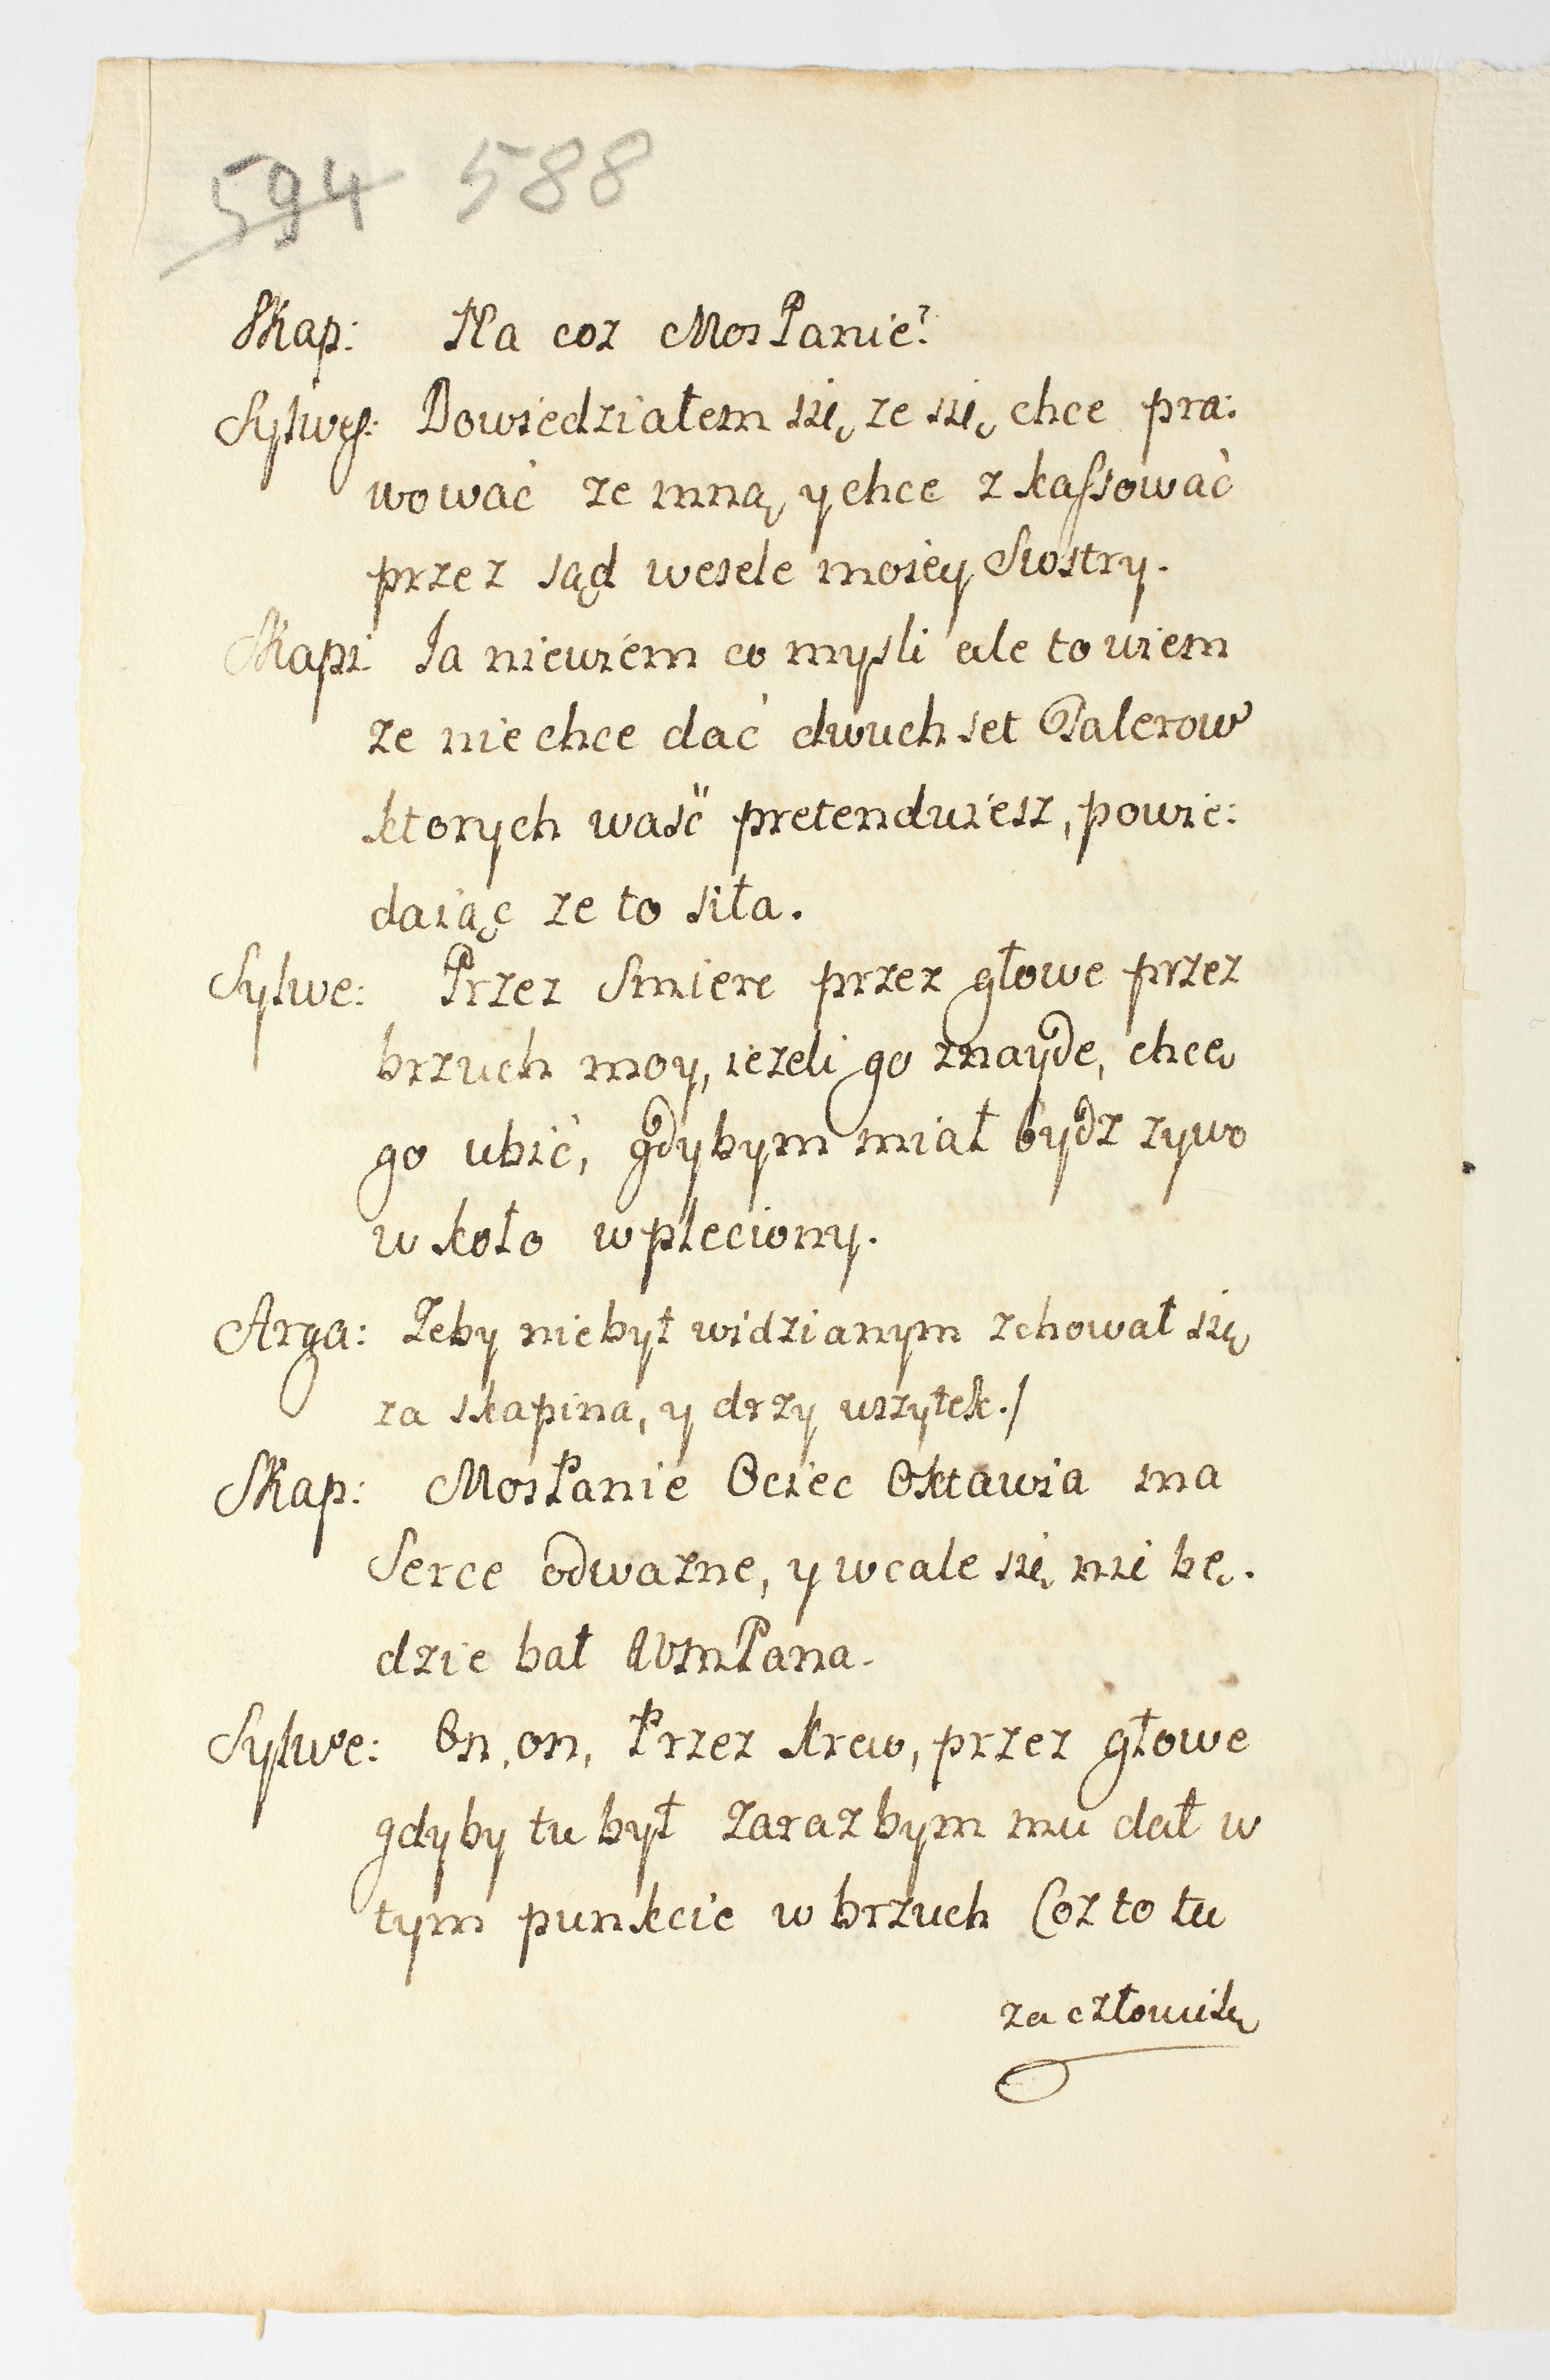 594 588
Skap: Na coz MosPanie?
Sylwes: Dowiedziałem się, ze się, chce pra:
wować ze mną, y chce z kassować
przez sąd wesele moiey Siostry.
Skapi Ja niewiem co mysli ale to wiem
ze nie chce dać dwuch set Talerow
ktorych waść pretenduiesz, powie:
daiąc ze to siła.
Sylwe: Przez Smierc przez głowe przez
brzuch moy, iezeli go znayde, chcę
go ubić, gdybym miał bydz zywo
w koło wpleciony.
Arga: Zeby niebył widzianym zchował się
za skapina, y drzy wszytek./
Skap: MosPanie Ociec Oktawia ma
Serce odwazne, y wcale się nie bę.
dzie bał WmPana.
Sylwe: On, on, Przez krew, przez głowe
gdyby tu był zaraz bym mu dał w
tym punkcie w brzuch Coz to tu
za człowiek